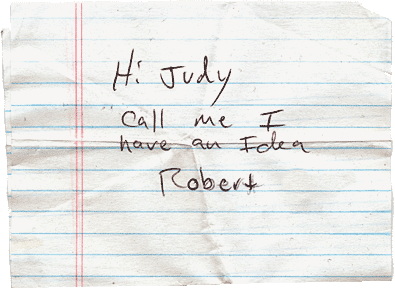 Hi Judy
Call me I
have an Idea
Robert